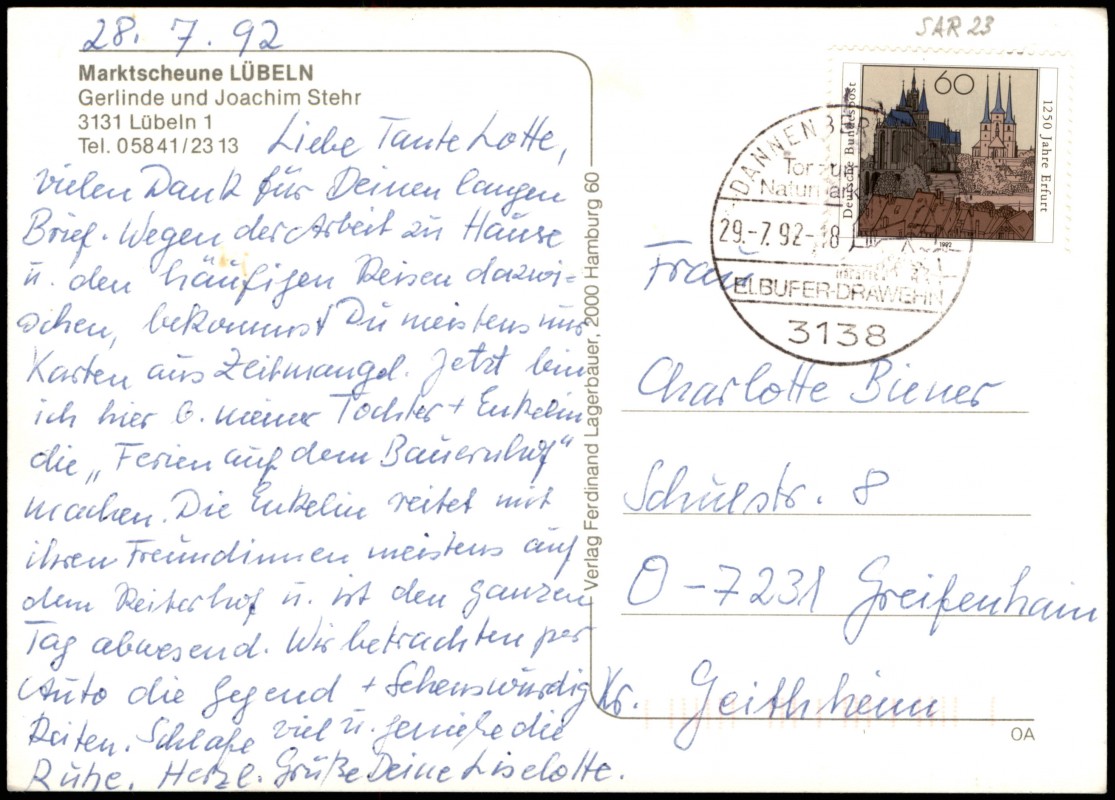 28. 7. 92
Marktscheune LÜBELN
Gerlinde und Joachim Stehr
3131 Lübeln 1
Tel. 05841/2313
Liebe Tante Lotte,
vielen Dank für Deinen langen
Brief. Wegen der Arbeit zu Hause
u. den häufigen Reisen dazwi-
schen, bekommst Du meistens nur
Karten aus Zeitmangel. Jetzt bin
ich hier b. meiner Tochter + Enkelin
die „Ferien auf dem Bauernhof"
machen. Die Enkelin reitet mit
ihren Freundinnen meistens auf
dem Reiterhof u. ist den ganzen
Tag abwesend. Wir betrachten per
Auto die Gegend + Sehenswürdig
keiten. Schlafe viel u. genieße die
Ruhe. Herzl. Grüße Deine Liselotte.
Verlag Ferdinand Lagerbauer, 2000 Hamburg 60
SAR 23
60
Deutsche Bundespost
1250 Jahre Erfurt
1992
DANNENBERG
Tor zum
Naturpark
29.-7.92-18
ELBUFER-DRAWEHN
3138
Frau
Charlotte Biener
Schulstr. 8
O-7231 Greifenhain
Kr. Geithhain
OA